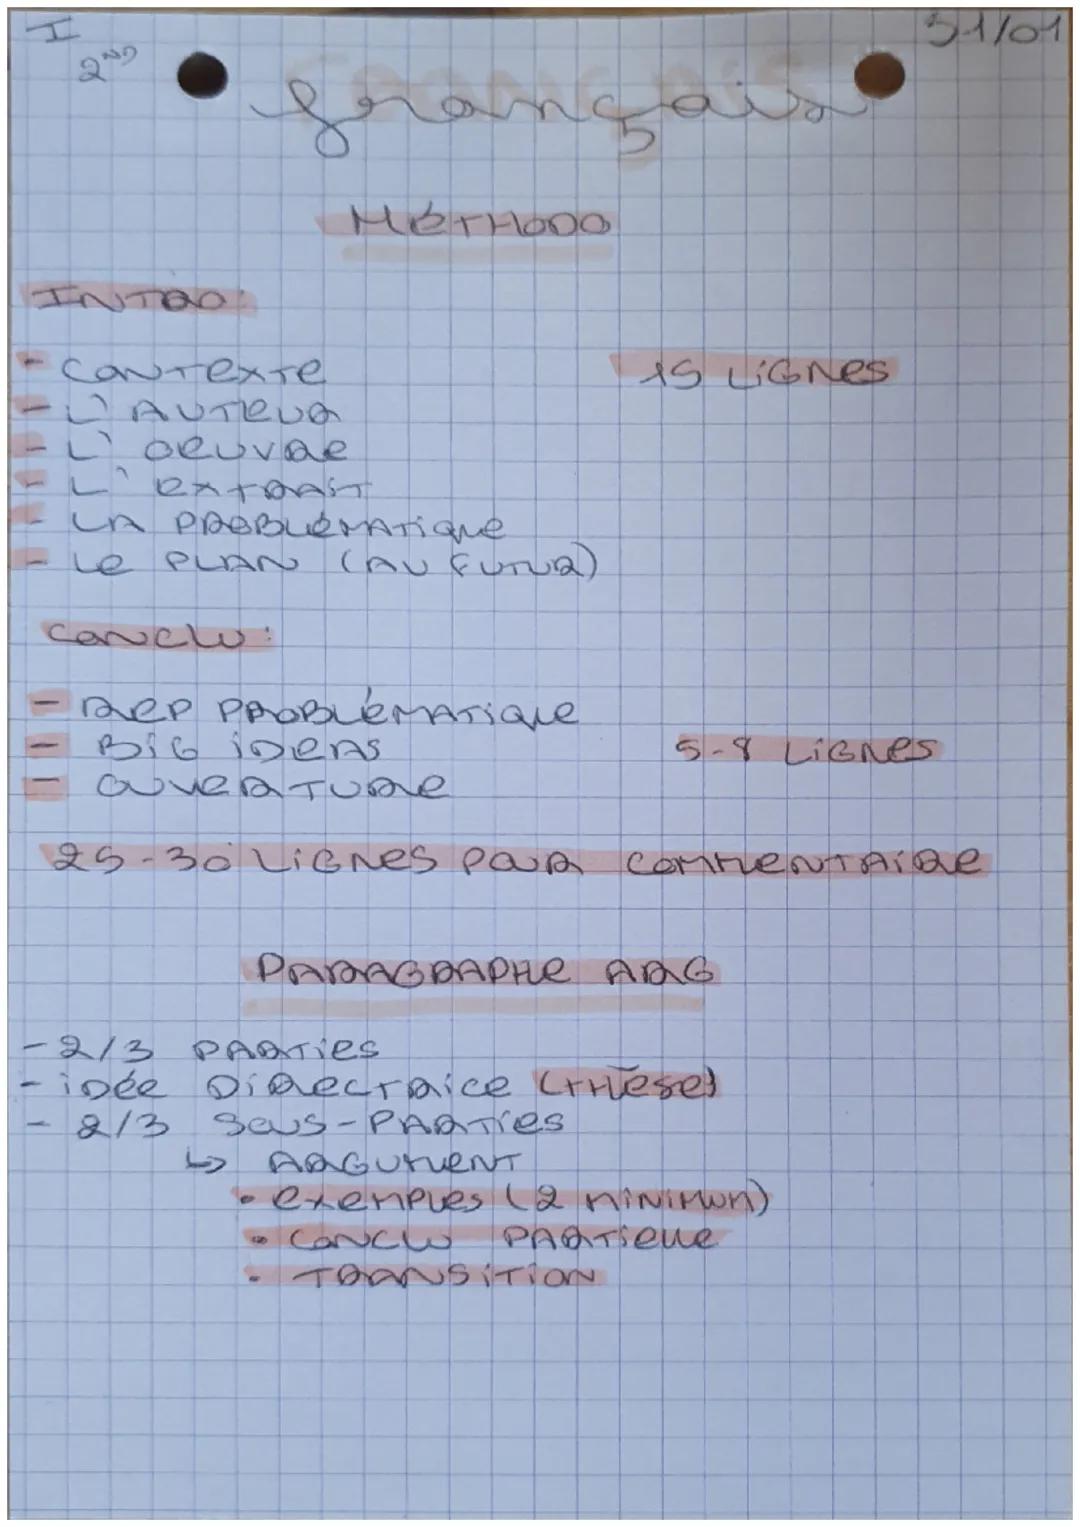 I
2ND
31/01
français
MéTHODO
INTRO:
- CONTEXTE
15 LiGNes
- L'AUTEUR
- L'OEUVRE
- L'EXTRAIT
- LA PROBLéMATIQUE
- Le PLAN (AU FUTUR)
CONCLU:
- REP PROBLéMATIQUE
- BiG iDEAS
5-8 LiGNes
- OUVERTURE
25-30 LiGNes POUR COMMENTAIRE
PARAGRAPHE ARG
- 2/3 PARTIES
- iDée DIRECTRICE (THèse)
- 2/3 SOUS-PARTIES
↳ ARGUMENT
• EXEMPLES (2 MINIMUM)
• CONCLU PARTIELLE
• TRANSITION